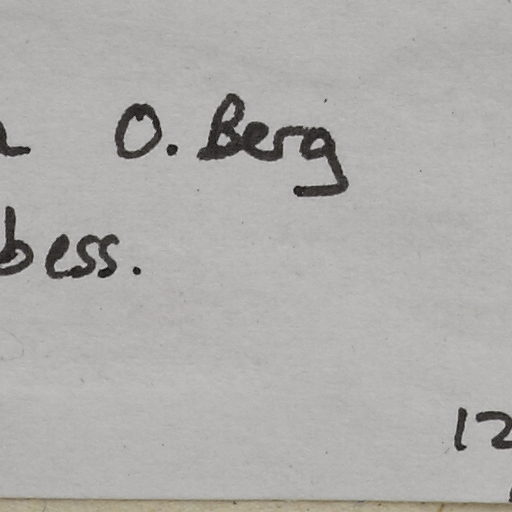 O. Berg
bess.
12